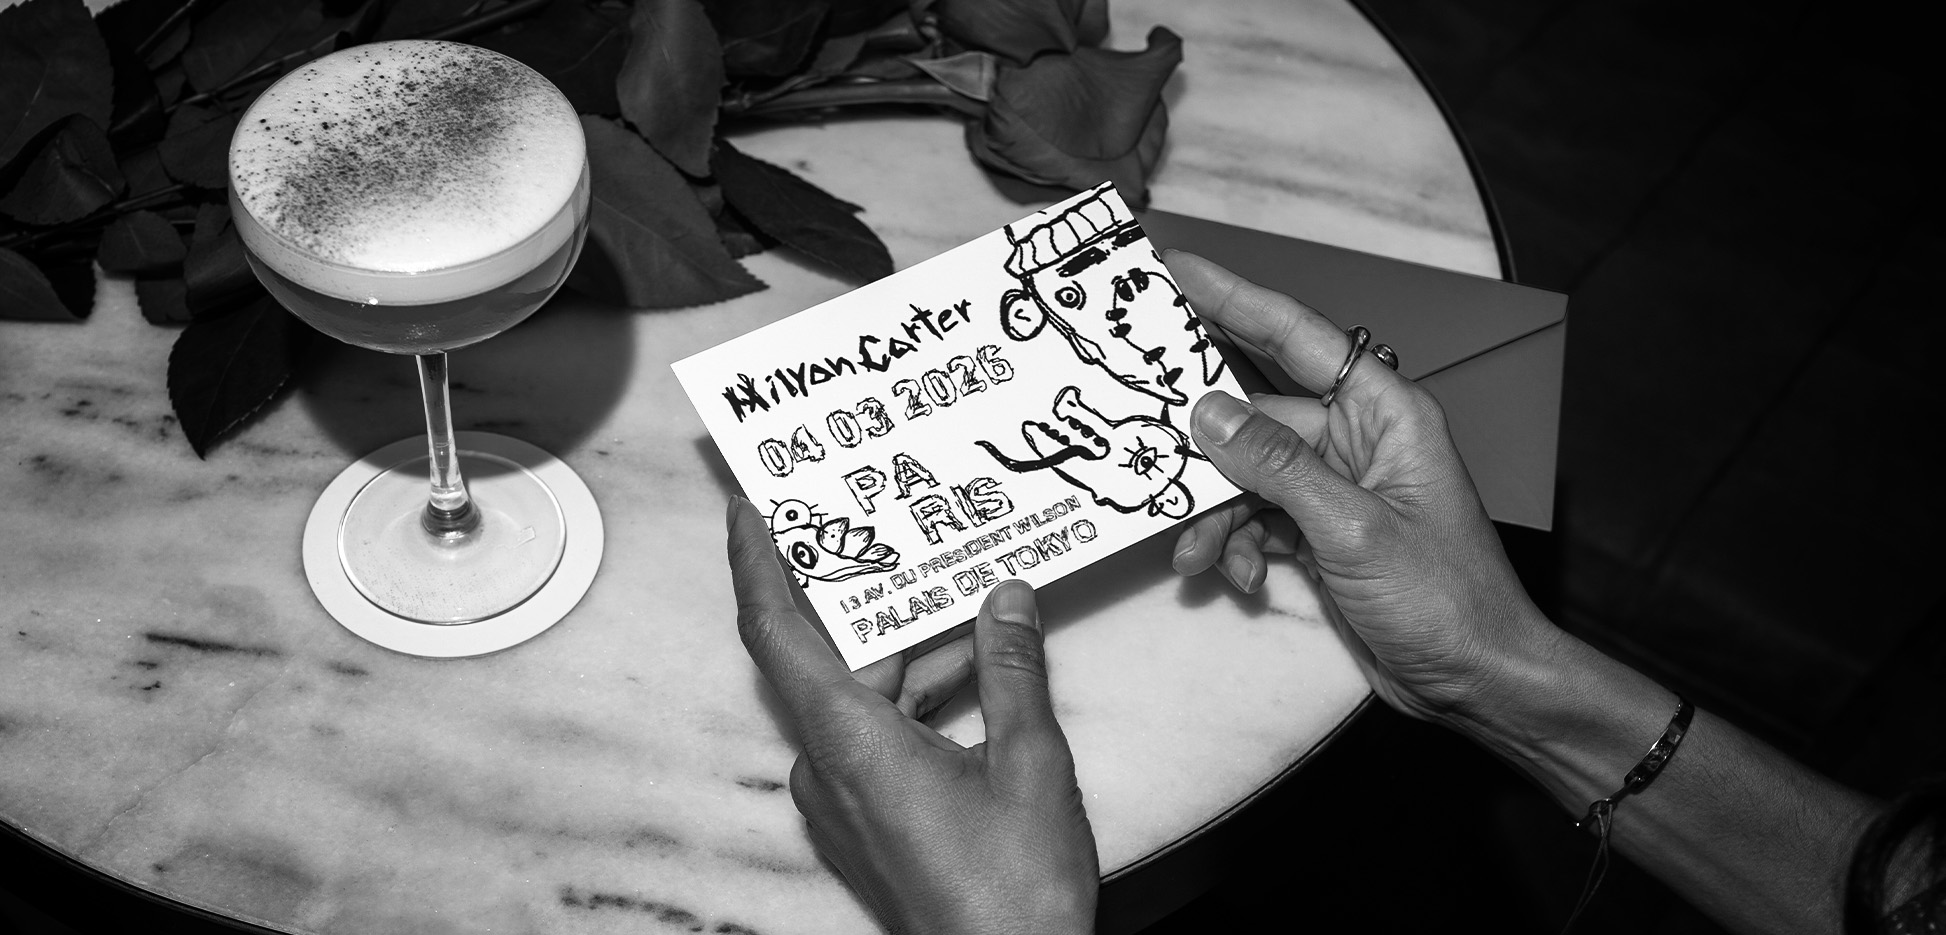 Milyan Carter
04 03 2026
PA
RIS
13 AV. DU PRESIDENT WILSON
PALAIS DE TOKYO